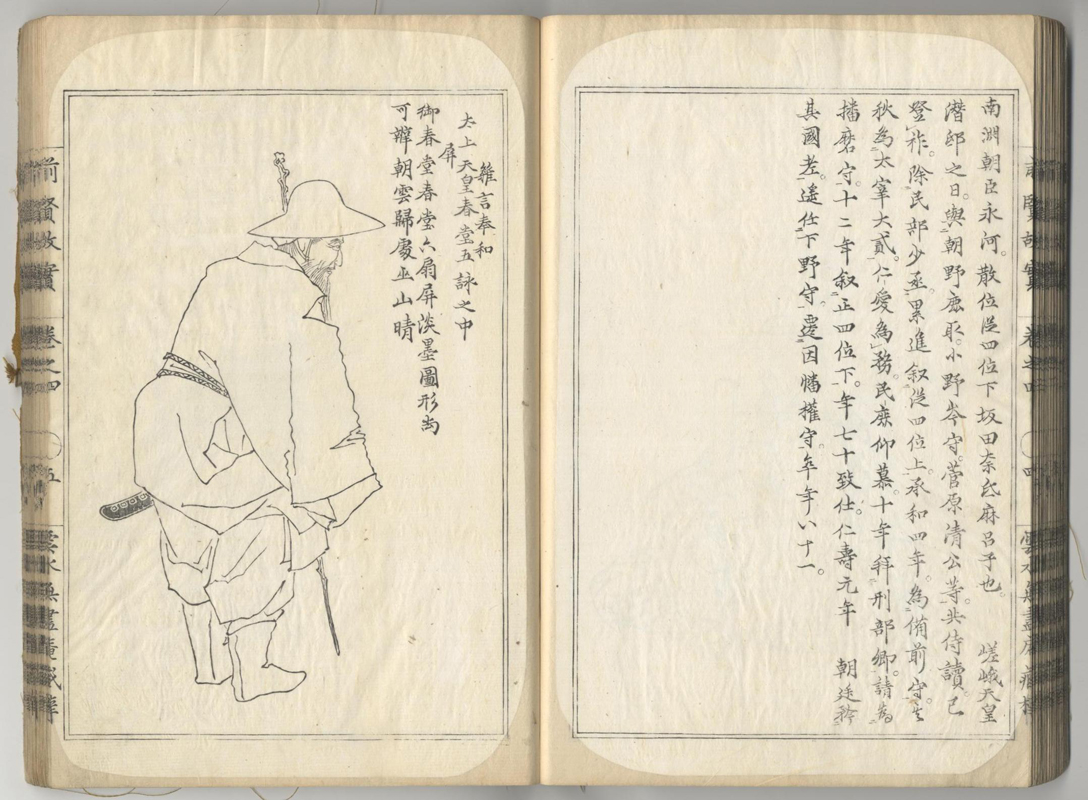 南淵朝臣永河。散位從四位下坂田奈氐麻呂子也。　嵯峨天皇
潛邸之日。與朝野鹿取。小野岑守。菅原清公等。共侍讀。已
登祚。除民部少丞。累進叙從四位上。承和四年。為備前守。
秋為太宰大貳。仁愛為務。民庶仰慕。十年拜刑部卿。請為
播磨守。十二年叙正四位下。年七十致仕。仁壽元年　朝廷矜
其國老。遙任下野守。遷因幡權守。卒年八十一。
雜言奉和
太上天皇春堂五詠之中
屏
御春堂春堂六扇屏淡墨圖形尚
可辨朝雲歸處巫山晴
前賢故實　卷之四　五　雲水無盡庵藏
前賢故實　卷之四　四　雲水無盡庵藏